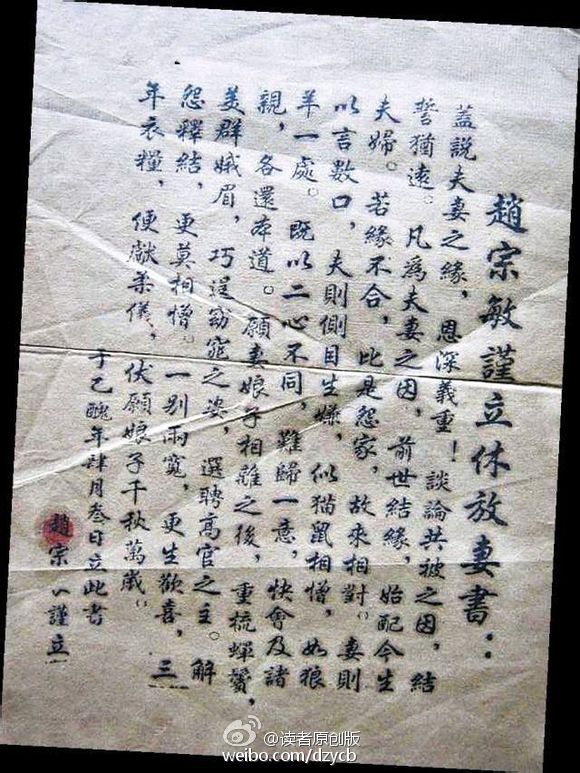 趙宗敏謹立休放妻書：
蓋説夫妻之緣，恩深義重！談論共被之因，結
誓猶遠。凡爲夫妻之因，前世結緣，始配今生
夫婦。若緣不合，此是怨家，故來相對。妻則
以言數口，夫則側目生嫌，似猫鼠相憎，如狼
羊一處。既以二心不同，難歸一意，快會及諸
親，各還本道。願妻娘子相離之後，重梳蟬鬢，
美群娥眉，巧逞窈窕之姿，選聘高官之主。解
怨釋結，更莫相憎。一別雨寬，更生歡喜，三
年衣糧，便獻柔儀，伏願娘子千秋萬歲。
于乙醜年肆月叁日立此書
趙宗 謹立
@读者原创版
weibo.com/dzycb